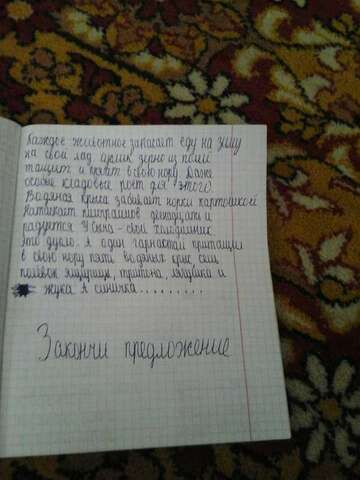 Каждое животное запасает еду на зиму
на свой лад
зерно из поля
тащит и прячет в свою нору. Даже
особые кладовые роет для этого.
Водяная крыса забивает норки картошкой
Натыкает
и
радуется
сыно - свой холодильник
это дупло. А один горностай притащил
в свою нору пять водяных крыс, сем
полёвок ящерицу, тритона, лягушка и
жука. А синичка.........
Закончи предложение